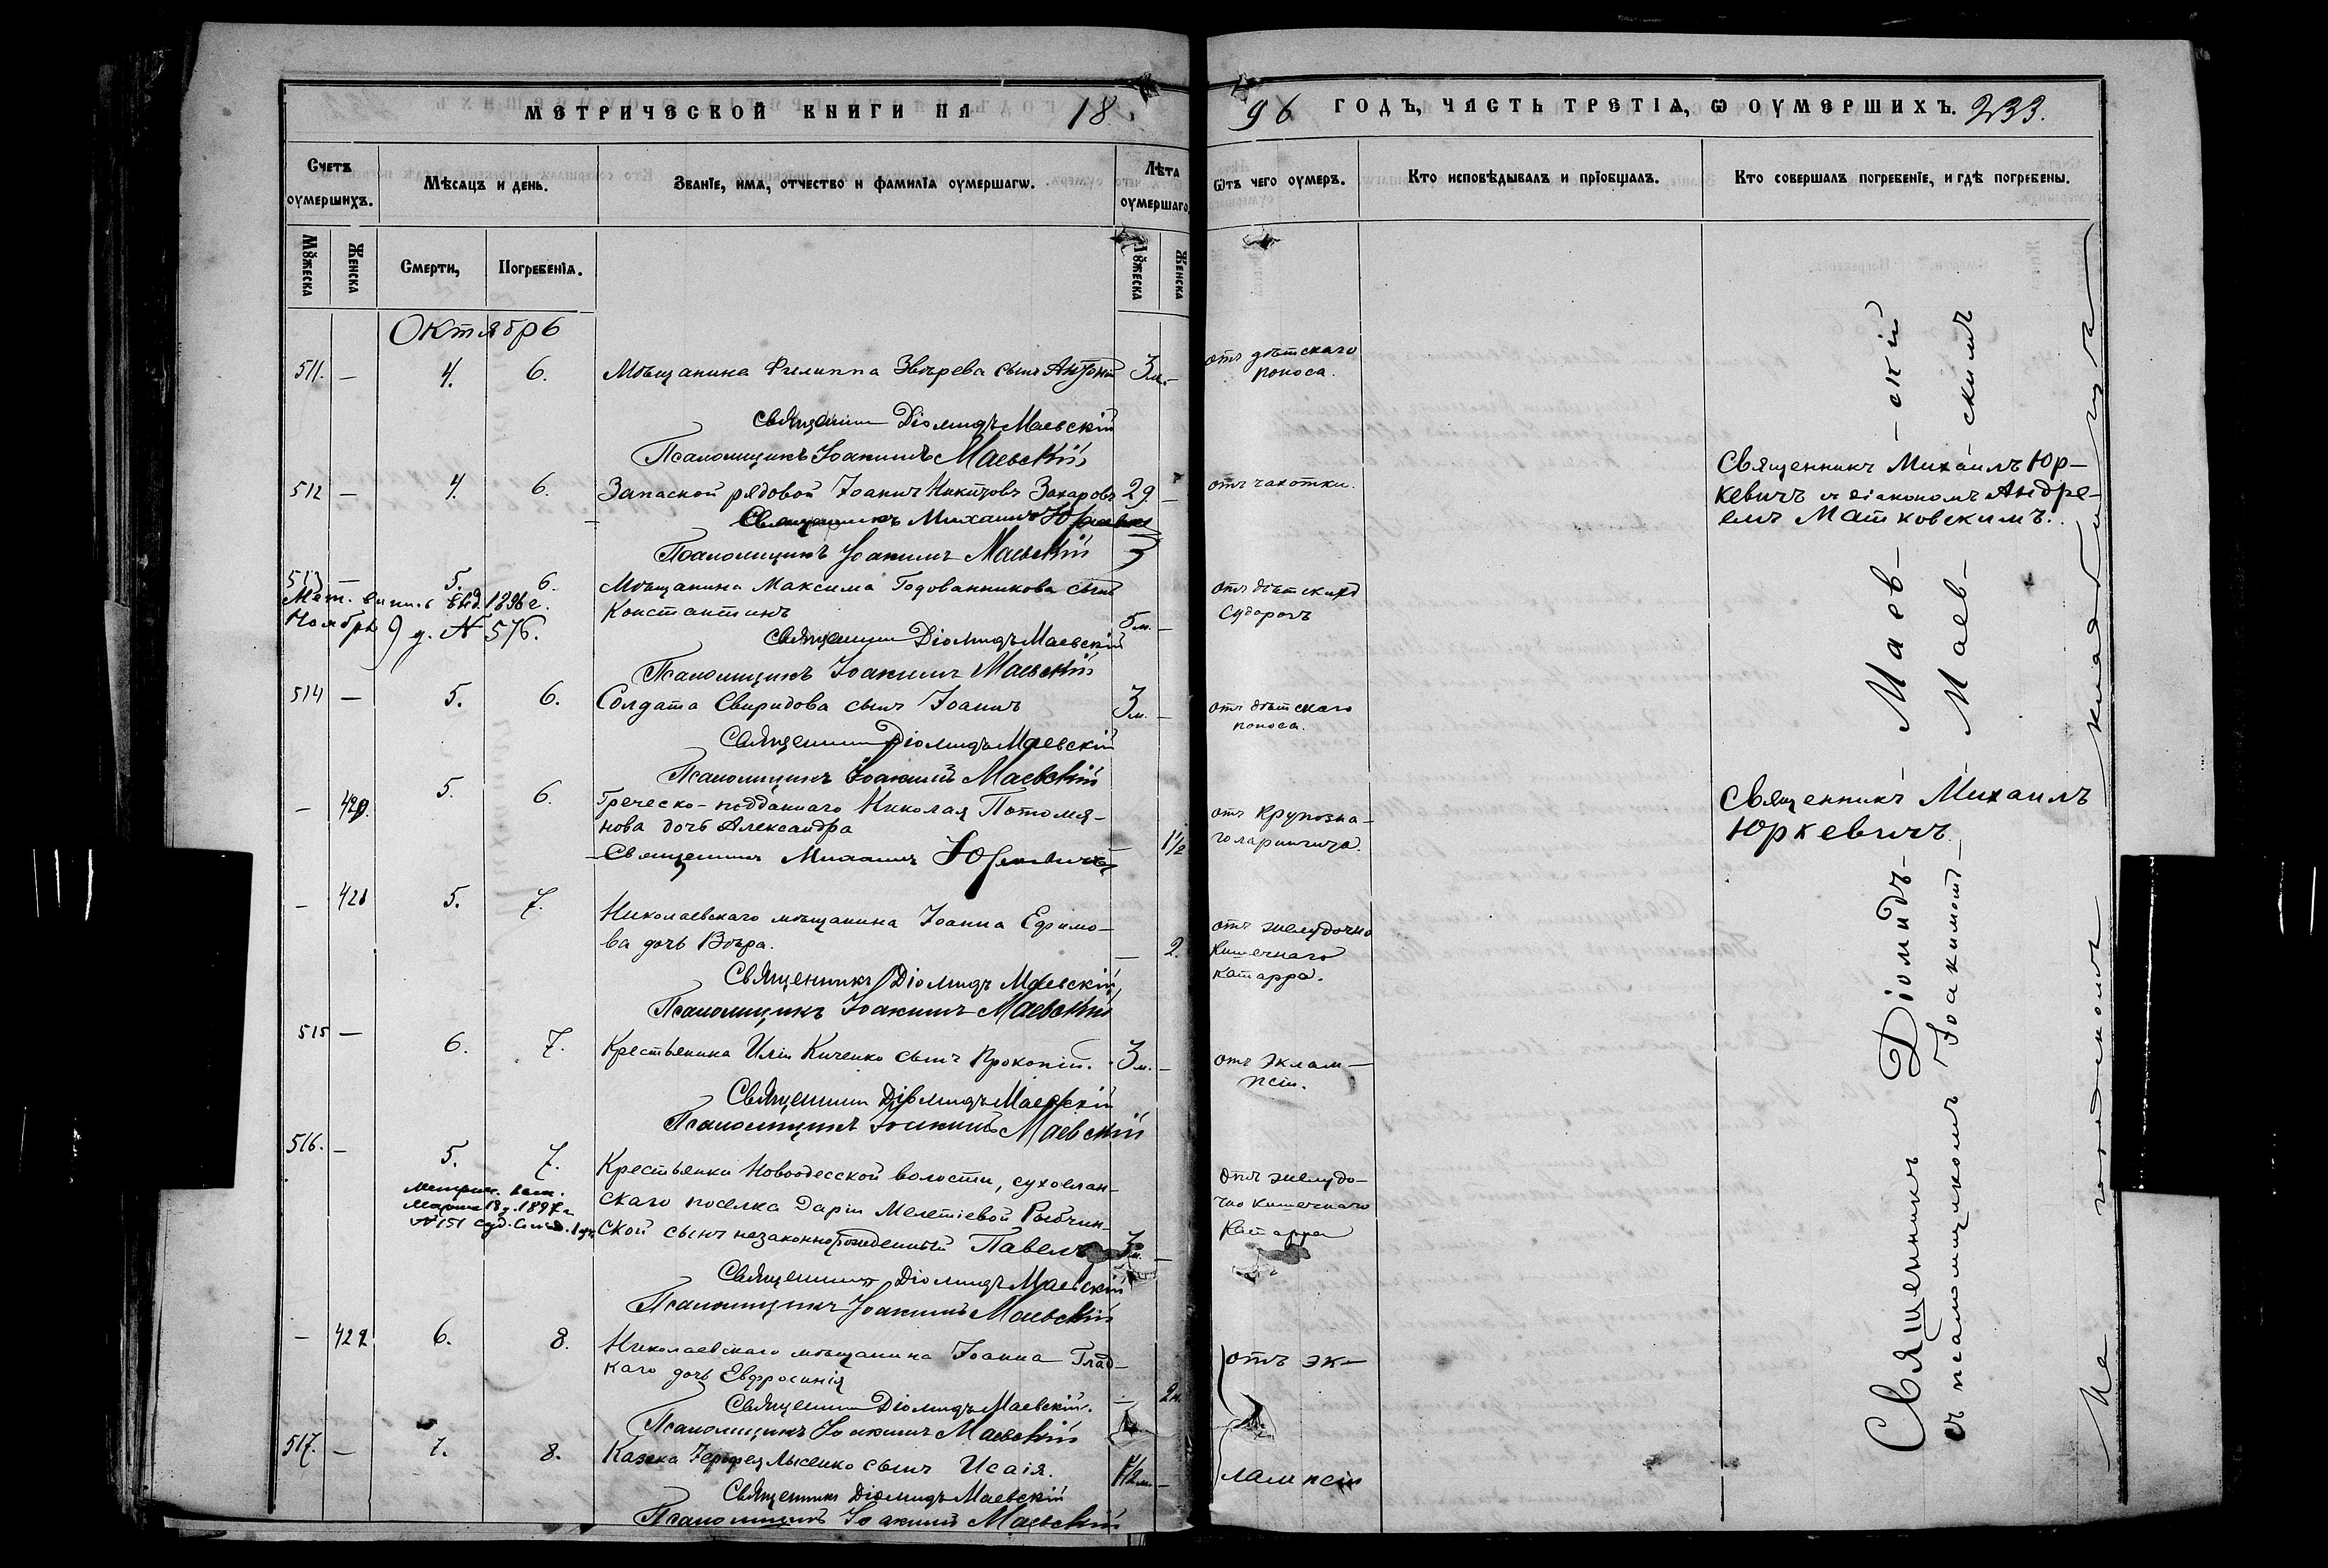 МЕТРИЧЕСКОЙ КНИГИ НА 18
96 ГОДЪ, ЧАСТЬ ТРЕТІѦ, Ѡ ОУМЕРШИХЪ. 233.
Счетъ оумершихъ.
Мѣсяцъ и день.
Званїе, имѧ, отчество и фамилїѧ оумершагѡ.
Лѣта оумершаго
Ѿтъ чего оумеръ.
Кто исповѣдывалъ и прїобщалъ.
Кто совершалъ погребенїе, и гдѣ погребены.
Мꙋжеска
Женска
Смерти,
Погребенїѧ.
Мꙋжеска
Женска
Октябрь
511. — 4. 6. Мѣщанина Филиппа Звѣрева сынъ Антоній 3 м. — отъ дѣтскаго
поноса.
Священникъ Діомидъ Маевскій
Псаломщикъ Іоакимъ Маевскій
512 — 4. 6. Запасной рядовой Іоаннъ Никитовъ Захаровъ 29 — отъ чахотки.
Священникъ Михаилъ Юркевичъ
Псаломщикъ Іоакимъ Маевскій
Священникъ Михаилъ Юр-
кевичъ съ діакономъ Андре-
емъ Матковскимъ.
513 — 5. 6. Мѣщанина Максима Годованникова сынъ отъ дѣтскихъ
Константинъ 5 м. — судорогъ
Мет. выпись выд. 1896 г.
Ноября 9 д. № 576.
Священникъ Діомидъ Маевскій
Псаломщикъ Іоакимъ Маевскій
514 — 5. 6. Солдата Свиридова сынъ Іоаннъ 3 м. — отъ дѣтскаго
поноса.
Священникъ Діомидъ Маевскій
Псаломщикъ Іоакимъ Маевскій
— 420. 5. 6. Греческо-подданаго Николая Потомя- отъ крупозна-
нова дочь Александра 1½ го ларингита.
Священникъ Михаилъ Юркевичъ
Священникъ Михаилъ
Юркевичъ.
— 421 5. 7. Николаевскаго мѣщанина Іоанна Ефимо- отъ желудочно
ва дочь Вѣра. — 2. кишечнаго
катарра.
Священникъ Діомидъ Маевскій
Псаломщикъ Іоакимъ Маевскій
515 — 6. 7. Крестьянина Иліи Киченко сынъ Прокопій. 3 м. — отъ эклам-
псіи.
Священникъ Діомидъ Маевскій
Псаломщикъ Іоакимъ Маевскій
516. — 5. 7. Крестьянки Новоодесской волости, сухоелан- отъ желудо-
скаго поселка Даріи Мелетіевой Рыбчин- чно кишечнаго
ской сынъ незаконнорожденный Павелъ 3 м. — катарра
Метрич. вып.
Марта 18 д. 1897 г.
№ 151
Священникъ Діомидъ Маевскій
Псаломщикъ Іоакимъ Маевскій
— 422 6. 8. Николаевскаго мѣщанина Іоанна Глад- отъ эк-
каго дочь Евфросинія — 2 м.
Священникъ Діомидъ Маевскій.
Псаломщикъ Іоакимъ Маевскій
517. — 7. 8. Казака Іерофея Лысенко сынъ Исаія. 1½ м. — лампсіи
Священникъ Діомидъ Маевскій
Псаломщикъ Іоакимъ Маевскій
Священникъ Діомидъ Маев-скій
съ псаломщикомъ Іоакимомъ Маев-скимъ
На городскомъ кладбищѣ